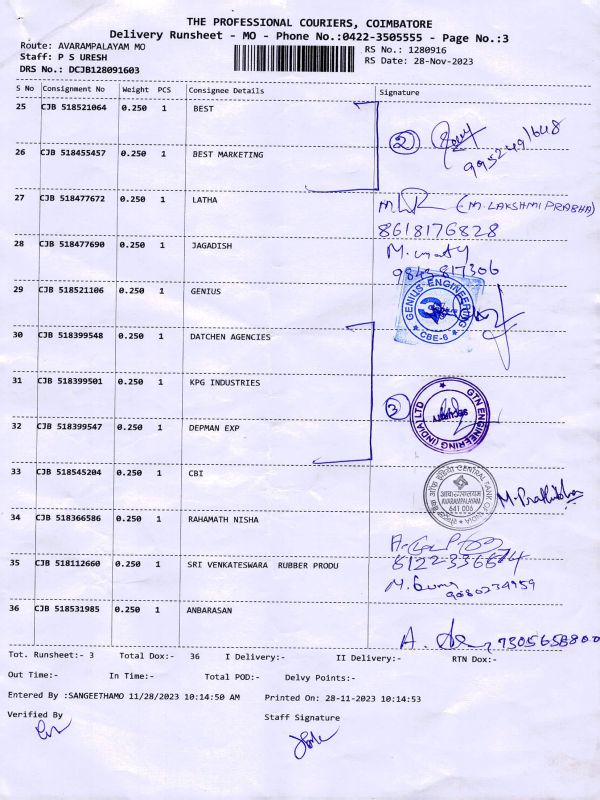 THE PROFESSIONAL COURIERS, COIMBATORE
Delivery Runsheet - MO - Phone No.:0422-3505555 - Page No.:3
Route: AVARAMPALAYAM MO
RS No.: 1280916
Staff: P S URESH
RS Date: 28-Nov-2023
DRS No.: DCJB128091603
S No Consignment No Weight PCS Consignee Details Signature
25 CJB 518521064 0.250 1 BEST
2
26 CJB 518455457 0.250 1 BEST MARKETING
27 CJB 518477672 0.250 1 LATHA
(M. LAKSHMI PRABHA)
8618176828
28 CJB 518477690 0.250 1 JAGADISH
9843817306
29 CJB 518521106 0.250 1 GENIUS
GENIUS ENGINEERING
CBE-6
30 CJB 518399548 0.250 1 DATCHEN AGENCIES
31 CJB 518399501 0.250 1 KPG INDUSTRIES
3
GTN ENGINEERING (INDIA) LTD
SECURITY
32 CJB 518399547 0.250 1 DEPMAN EXP
33 CJB 518545204 0.250 1 CBI
CENTRAL BANK OF INDIA
AVARAMPALAYAM
641 006
34 CJB 518366586 0.250 1 RAHAMATH NISHA
35 CJB 518112660 0.250 1 SRI VENKATESWARA RUBBER PRODU
9080234959
36 CJB 518531985 0.250 1 ANBARASAN
Tot. Runsheet:- 3 Total Dox:- 36 I Delivery:- II Delivery:- RTN Dox:-
Out Time:- In Time:- Total POD:- Delvy Points:-
Entered By :SANGEETHAMO 11/28/2023 10:14:50 AM Printed On: 28-11-2023 10:14:53
Verified By
Staff Signature